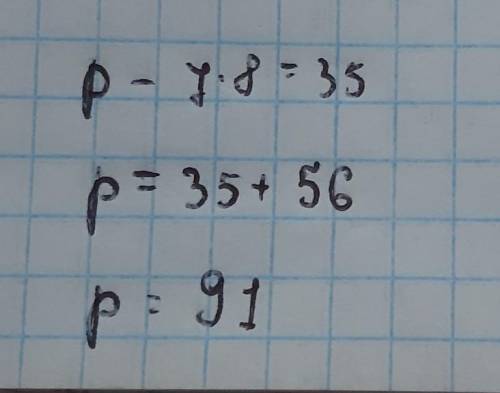 p - 7·8 = 35
p = 35 + 56
p = 91